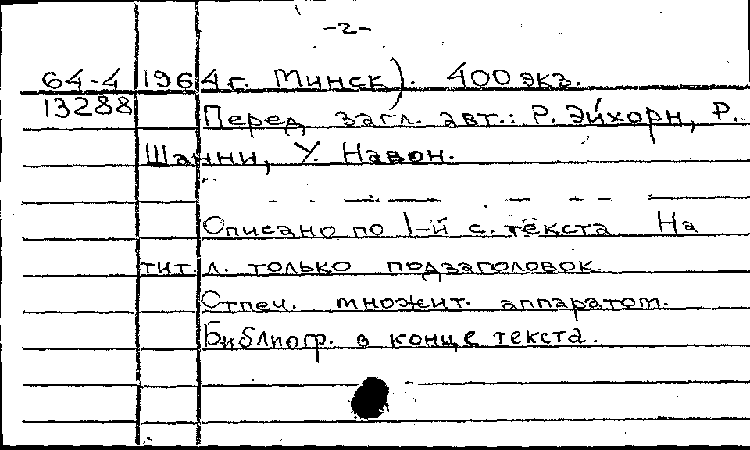 -2-
64-4 1964 г. Минск). 400 экз.
13288 Перед загл. авт.: Р. Эйхорн, Р.
Шанни, У. Навон.
Описано по 1-й с. текста На
тит. л. только подзаголовок
Отпеч. множит. аппаратом.
Библиогр. в конце текста.